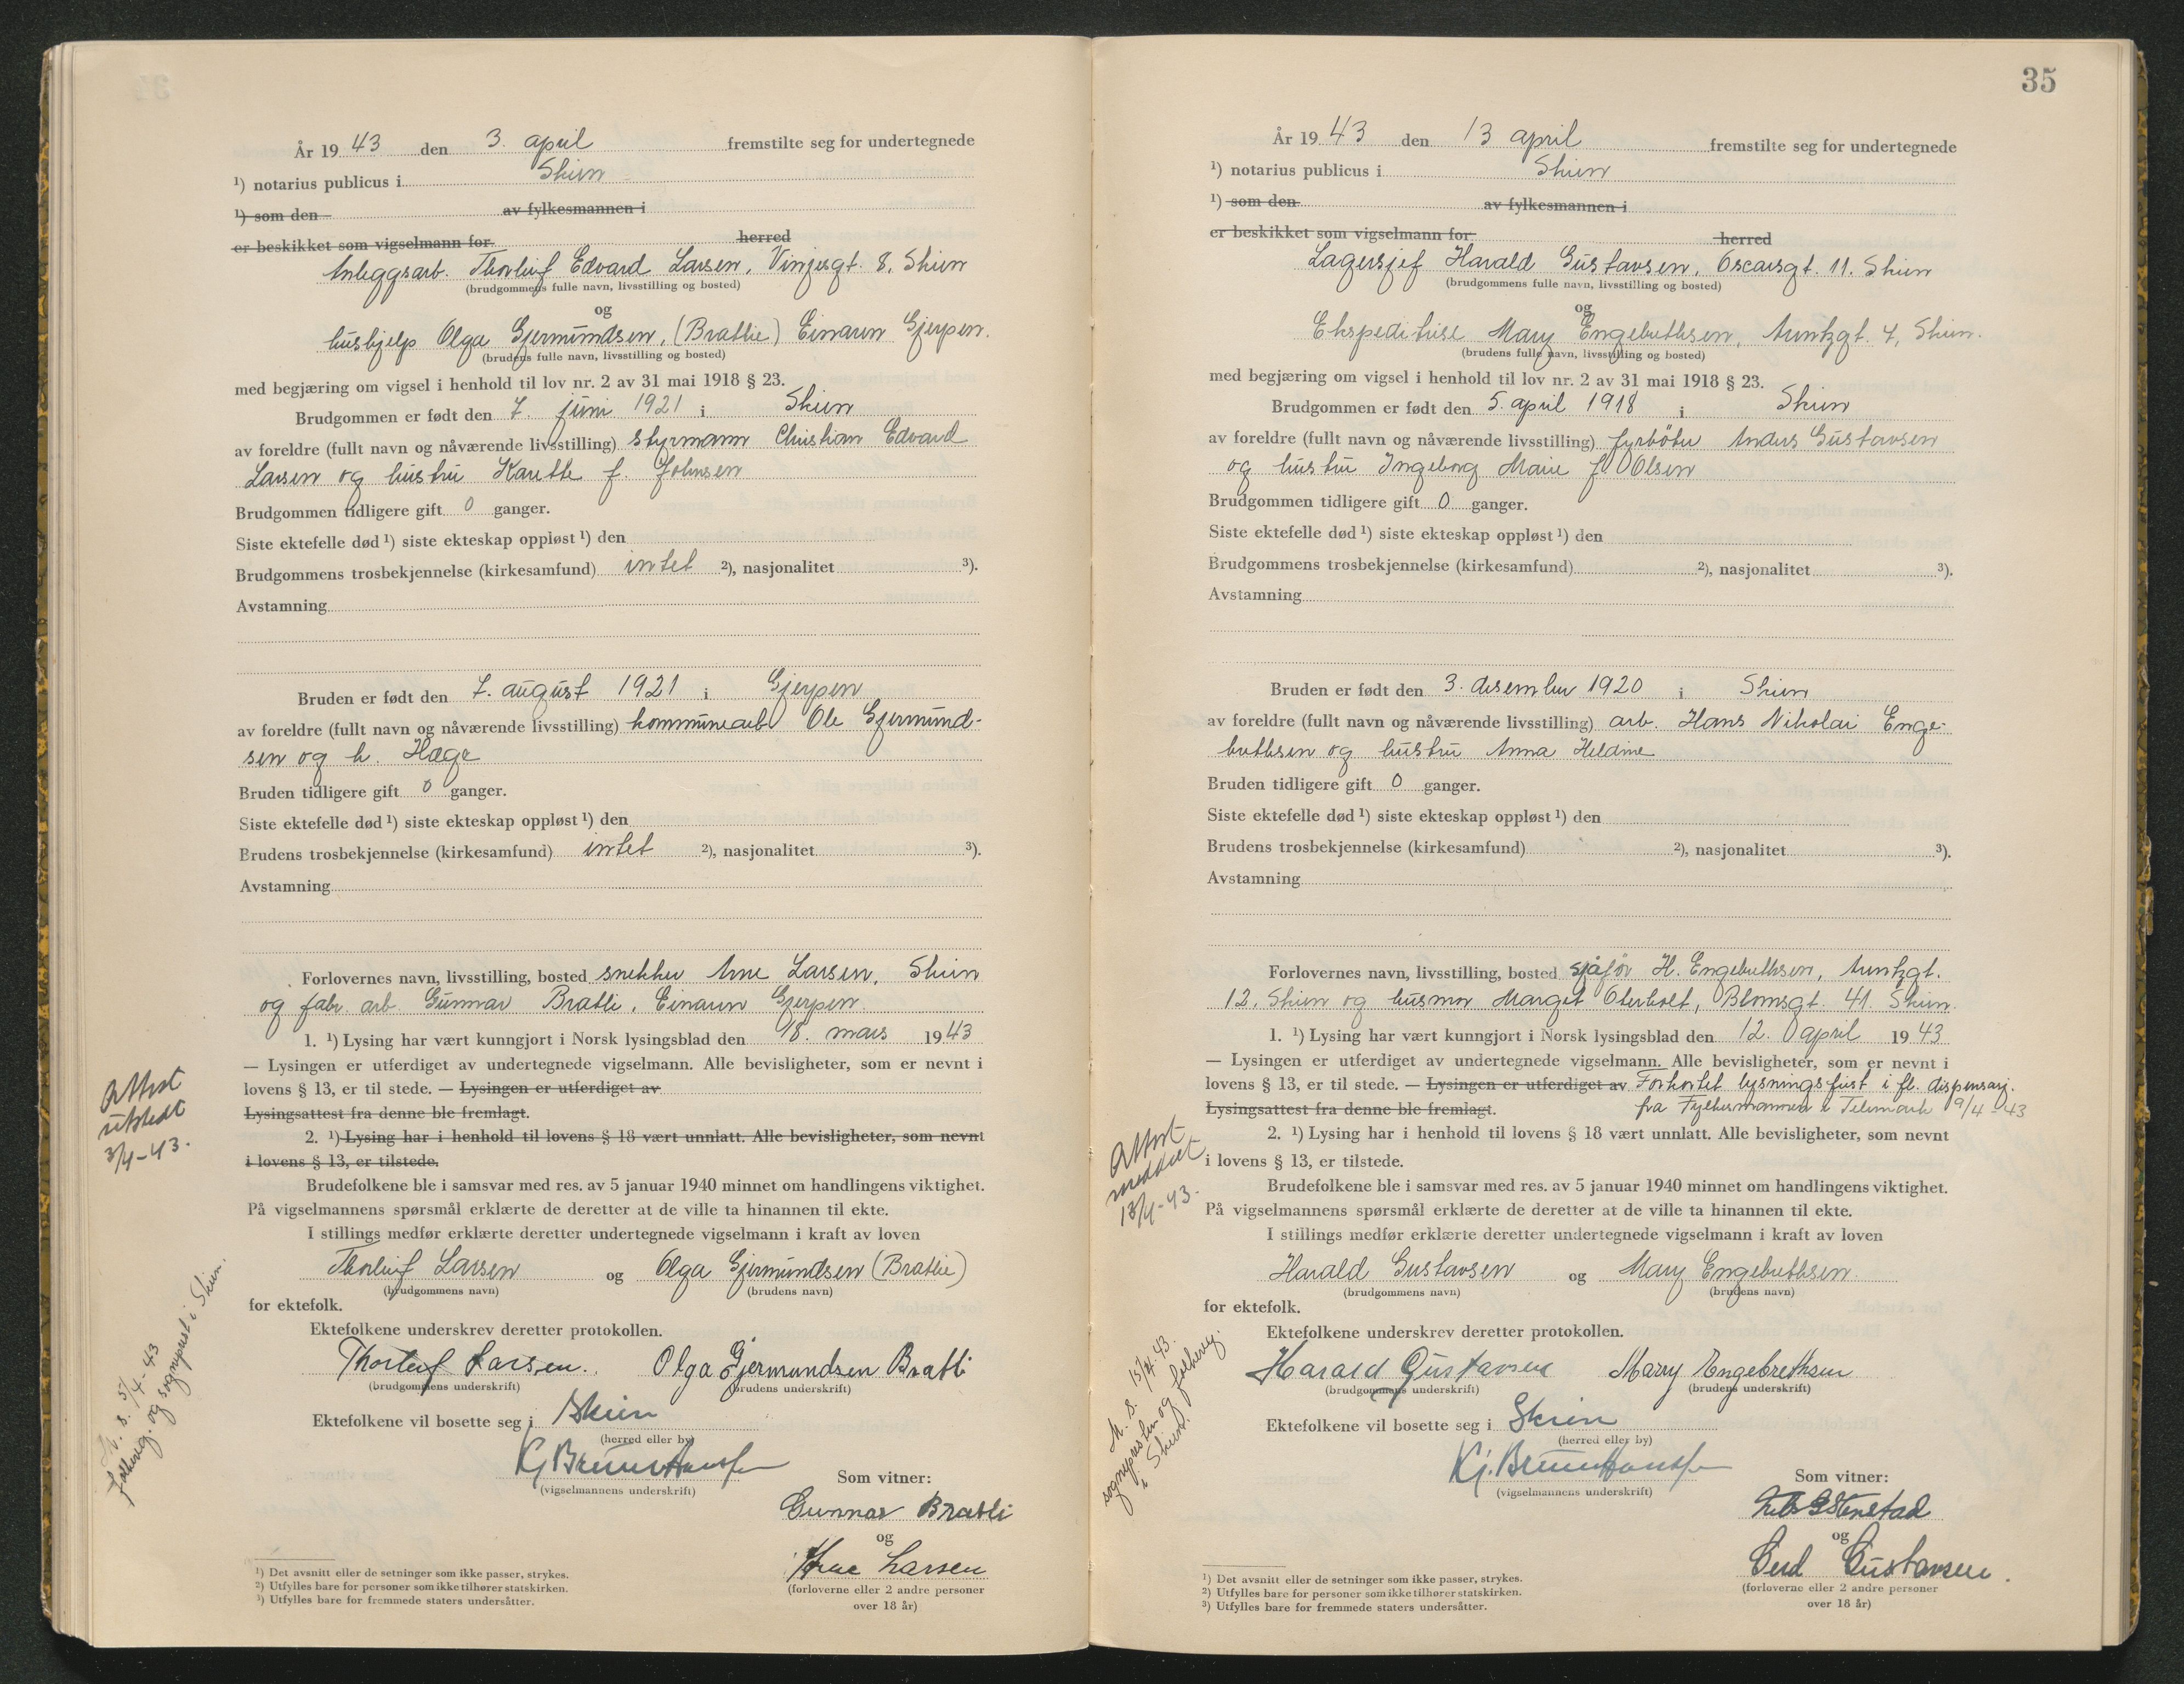 År 19 43 den 3. april fremstilte seg for undertegnede
¹) notarius publicus i Skien
¹) som den av fylkesmannen i
er beskikket som vigselmann for herred
Anleggsarb. Thorleif Edvard Larsen, Vinjesgt. 8, Skien
(brudgommens fulle navn, livsstilling og bosted)
og
hushjelp Olga Gjermundsen, (Bratlie) Einaren Gjerpen.
(brudens fulle navn, livsstilling og bosted)
med begjæring om vigsel i henhold til lov nr. 2 av 31 mai 1918 § 23.
Brudgommen er født den 7. juni 1921 i Skien
av foreldre (fullt navn og nåværende livsstilling) styrmann Christian Edvard
Larsen og hustru Karethe f. Johnsen
Brudgommen tidligere gift 0 ganger.
Siste ektefelle død ¹) siste ekteskap oppløst ¹) den
Brudgommens trosbekjennelse (kirkesamfund) intet ²), nasjonalitet ³).
Avstamning
Bruden er født den 7. august 1921 i Gjerpen
av foreldre (fullt navn og nåværende livsstilling) kommunearb Ole Gjermund-
sen og h. Hæge
Bruden tidligere gift 0 ganger.
Siste ektefelle død ¹) siste ekteskap oppløst ¹) den
Brudens trosbekjennelse (kirkesamfund) intet ²), nasjonalitet ³).
Avstamning
Forlovernes navn, livsstilling, bosted snekker Arne Larsen, Skien
og fabr. arb. Gunnar Bratli, Einaren Gjerpen.
1. ¹) Lysing har vært kunngjort i Norsk lysingsblad den 18. mars 1943
— Lysingen er utferdiget av undertegnede vigselmann. Alle bevisligheter, som er nevnt i
lovens § 13, er til stede. — Lysingen er utferdiget av
Lysingsattest fra denne ble fremlagt.
2. ¹) Lysing har i henhold til lovens § 18 vært unnlatt. Alle bevisligheter, som nevnt
i lovens § 13, er tilstede.
Brudefolkene ble i samsvar med res. av 5 januar 1940 minnet om handlingens viktighet.
På vigselmannens spørsmål erklærte de deretter at de ville ta hinannen til ekte.
I stillings medfør erklærte deretter undertegnede vigselmann i kraft av loven
Thorleif Larsen og Olga Gjermundsen (Bratlie)
(brudgommens navn) (brudens navn)
for ektefolk.
Ektefolkene underskrev deretter protokollen.
Thorleif Larsen. Olga Gjermundsen Bratli
(brudgommens underskrift) (brudens underskrift)
Ektefolkene vil bosette seg i Skien
(herred eller by)
(vigselmannens underskrift)
Som vitner:
Gunnar Bratli
og
Arne Larsen
(forloverne eller 2 andre personer
over 18 år)
¹) Det avsnitt eller de setninger som ikke passer, strykes.
²) Utfylles bare for personer som ikke tilhører statskirken.
³) Utfylles bare for fremmede staters undersåtter.
Attest
utstedt
3/4-43.
M. s. 5/4-43
folkereg. og sogneprest i Skien.
35
År 19 43 den 13 april fremstilte seg for undertegnede
¹) notarius publicus i Skien
¹) som den av fylkesmannen i
er beskikket som vigselmann for herred
Lagersjef Harald Gustavsen, Oscarsgt. 11. Skien
(brudgommens fulle navn, livsstilling og bosted)
og
Ekspeditrise Mary Engebrethsen, Arntzgt. 4, Skien.
(brudens fulle navn, livsstilling og bosted)
med begjæring om vigsel i henhold til lov nr. 2 av 31 mai 1918 § 23.
Brudgommen er født den 5. april 1918 i Skien
av foreldre (fullt navn og nåværende livsstilling) fyrbøter Anders Gustavsen
og hustru Ingeborg Marie f. Olsen
Brudgommen tidligere gift 0 ganger.
Siste ektefelle død ¹) siste ekteskap oppløst ¹) den
Brudgommens trosbekjennelse (kirkesamfund) ²), nasjonalitet ³).
Avstamning
Bruden er født den 3. desember 1920 i Skien
av foreldre (fullt navn og nåværende livsstilling) arb. Hans Nikolai Enge-
brethsen og hustru Anna Heldine
Bruden tidligere gift 0 ganger.
Siste ektefelle død ¹) siste ekteskap oppløst ¹) den
Brudens trosbekjennelse (kirkesamfund) ²), nasjonalitet ³).
Avstamning
Forlovernes navn, livsstilling, bosted sjåfør H. Engebrethsen, Arntzgt.
12, Skien og husmor Margit Oterholt, Blomsgt. 41. Skien.
1. ¹) Lysing har vært kunngjort i Norsk lysingsblad den 12. april 1943
— Lysingen er utferdiget av undertegnede vigselmann. Alle bevisligheter, som er nevnt i
lovens § 13, er til stede. — Lysingen er utferdiget av Forkortet lysningsfrist i fl. dispensasj.
Lysingsattest fra denne ble fremlagt. fra Fylkesmannen i Telemark 9/4-43
2. ¹) Lysing har i henhold til lovens § 18 vært unnlatt. Alle bevisligheter, som nevnt
i lovens § 13, er tilstede.
Brudefolkene ble i samsvar med res. av 5 januar 1940 minnet om handlingens viktighet.
På vigselmannens spørsmål erklærte de deretter at de ville ta hinannen til ekte.
I stillings medfør erklærte deretter undertegnede vigselmann i kraft av loven
Harald Gustavsen og Mary Engebrethsen.
(brudgommens navn) (brudens navn)
for ektefolk.
Ektefolkene underskrev deretter protokollen.
Harald Gustavsen Marry Engebrethsen
(brudgommens underskrift) (brudens underskrift)
Ektefolkene vil bosette seg i Skien
(herred eller by)
(vigselmannens underskrift)
Som vitner:
og
Gerd Gustavsen.
(forloverne eller 2 andre personer
over 18 år)
¹) Det avsnitt eller de setninger som ikke passer, strykes.
²) Utfylles bare for personer som ikke tilhører statskirken.
³) Utfylles bare for fremmede staters undersåtter.
Attest
meddelt
13/4-43.
M. s. 15/4.43.
sognepresten og folkereg.
i Skien.